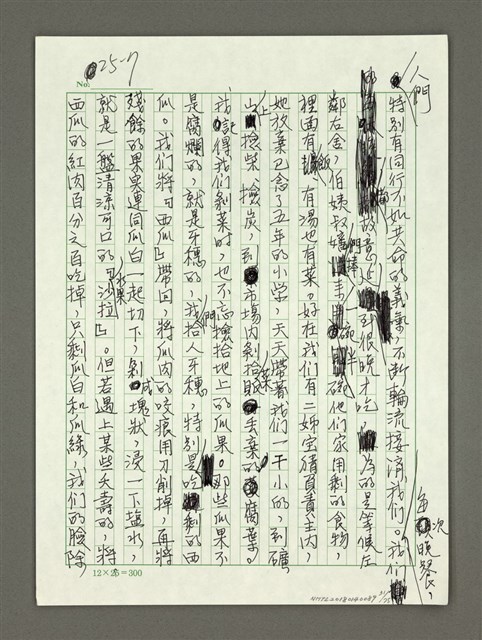 25-7
No:
人們
特別有同行不如共命的義氣,不斷輪流接濟我們。我們
每次晚餐,
故意延到很晚才吃,為的是等候左
鄰右舍,伯姨叔嬸們捧來一碗半碟他們家用剩的食物,
裡面有飯有湯也有菜。好在我們有二姊宝積負責主內,
她放棄已念了五年的小學,天天帶著我們一干小的,到礦
山上撿柴撿炭,到市場內剝拾丟棄的腐葉。
我記得我們剝菜時,也不忘撿拾地上的瓜果。那些瓜果不
是腐爛的,就是牙穗的,我拾人們牙穗,特別是吃剩的西
瓜。我們將『西瓜』帶回,將瓜肉的咬痕用刀削掉,再將
殘餘的果臭連同瓜白一起切下,剁成塊狀,浸一下塩水,
就是一盤清凉可口的『水果沙拉』。但若遇上某些夭壽的,將
西瓜的紅肉百分之百吃掉,只剩瓜白和瓜綠,我們的臉除
12×25=300